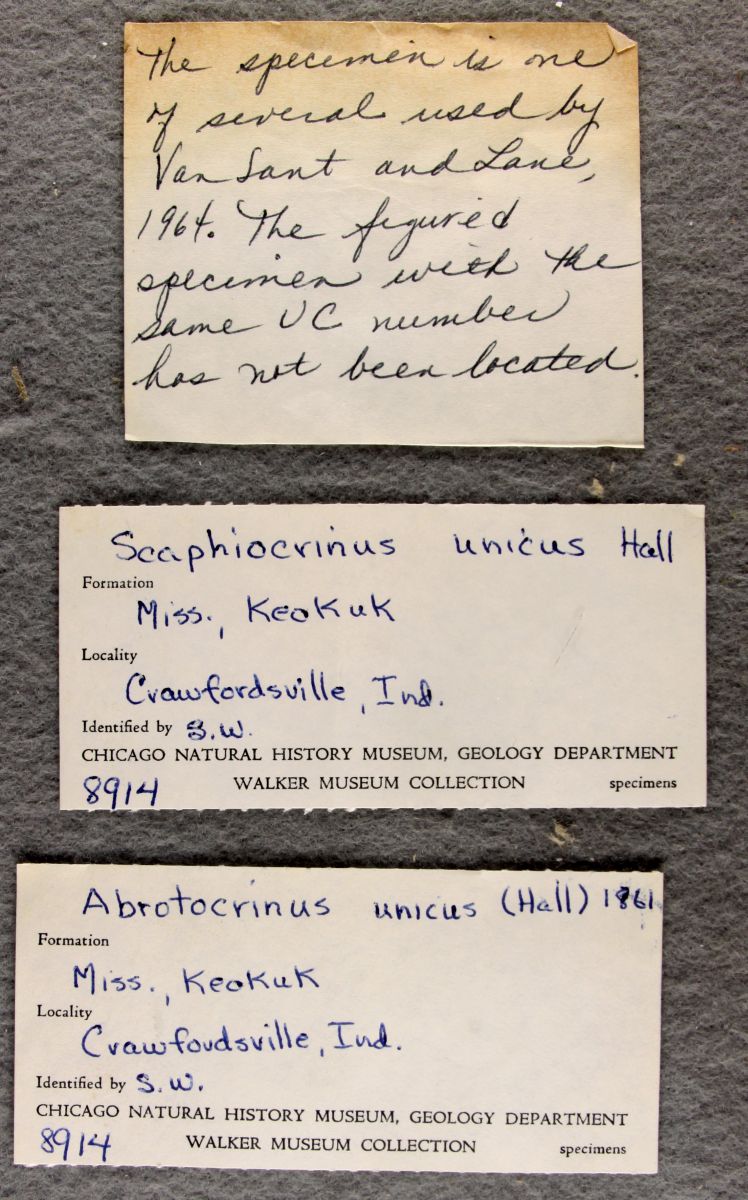 The specimen is one
of several used by
Van Sant and Lane,
1964. The figured
specimen with the
same UC number
has not been located.
Scaphiocrinus unicus Hall
Formation
Miss., Keokuk
Locality
Crawfordsville, Ind.
Identified by S.W.
CHICAGO NATURAL HISTORY MUSEUM, GEOLOGY DEPARTMENT
8914 WALKER MUSEUM COLLECTION specimens
Abrotocrinus unicus (Hall) 1861
Formation
Miss., Keokuk
Locality
Crawfordsville, Ind.
Identified by S.W.
CHICAGO NATURAL HISTORY MUSEUM, GEOLOGY DEPARTMENT
8914 WALKER MUSEUM COLLECTION specimens